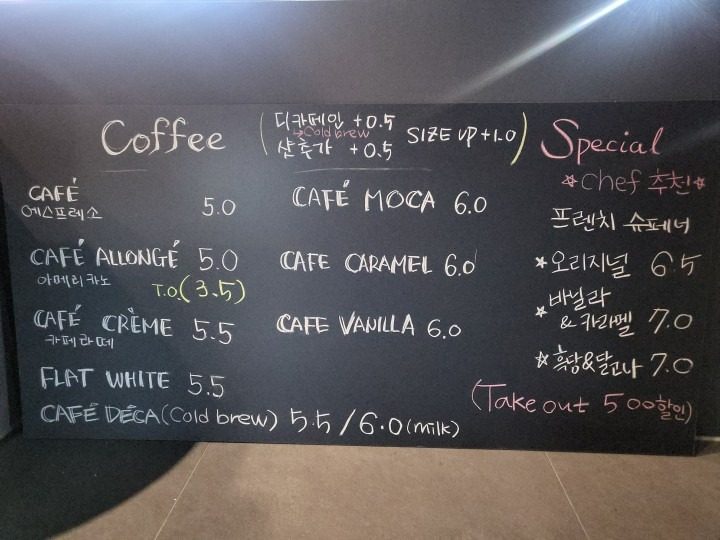 Coffee
(디카페인 +0.5
→Cold brew
샷추가 +0.5
SIZE UP +1.0)
CAFÉ
에스프레소 5.0
CAFÉ ALLONGÉ 5.0
아메리카노
T.O.(3.5)
CAFÉ CRÈME 5.5
카페라떼
FLAT WHITE 5.5
CAFÉ DÉCA (Cold brew) 5.5 / 6.0 (milk)
CAFÉ MOCA 6.0
CAFE CARAMEL 6.0
CAFE VANILLA 6.0
Special
☆ chef 추천 ☆
프렌치 슈페너
★ 오리지널 6.5
★ 바닐라
& 카라멜 7.0
★ 흑당&달고나 7.0
(Take out 500할인)